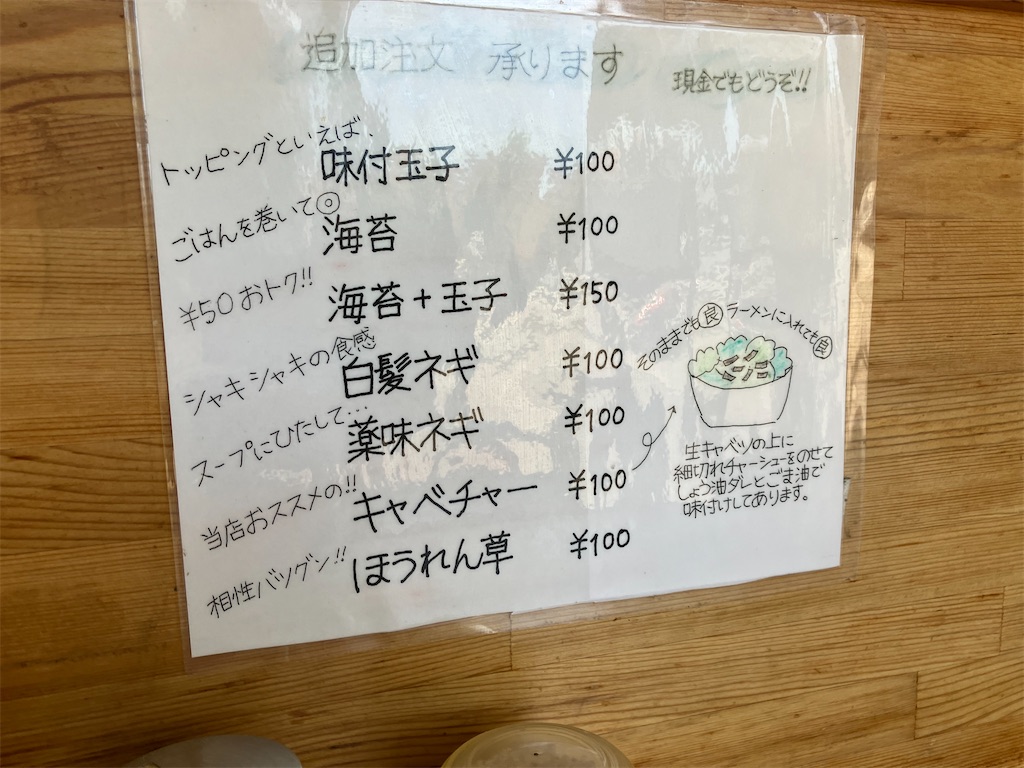 追加注文 承ります
現金でもどうぞ!!
トッピングといえば、
味付玉子 ¥100
ごはんを巻いて◎
海苔 ¥100
¥50おトク!!
海苔+玉子 ¥150
シャキシャキの食感
白髪ネギ ¥100
スープにひたして…
薬味ネギ ¥100
当店おススメの!!
キャベチャー ¥100
相性バツグン!!
ほうれん草 ¥100
そのままでも良 ラーメンに入れても良
生キャベツの上に
細切れチャーシューをのせて
しょう油ダレとごま油で
味付けしてあります。